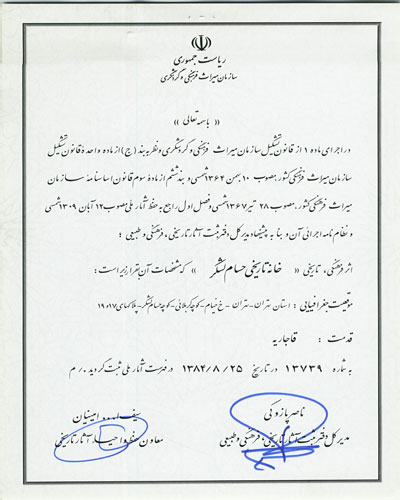 ریاست جمهوری
سازمان میراث فرهنگی و گردشگری
« باسمه تعالی »
در اجرای ماده ۱ از قانون تشکیل سازمان میراث فرهنگی و گردشگری و نظر به بند (ج) از ماده واحدهٔ قانون تشکیل
سازمان میراث فرهنگی کشور مصوب ۱۰ بهمن ۱۳۶۴ شمسی و بند ششم از مادهٔ سوم قانون اساسنامهٔ سازمان
میراث فرهنگی کشور مصوب ۲۸ تیر ۱۳۶۷ شمسی و فصل اول راجع به حفظ آثار ملی مصوب ۱۲ آبان ۱۳۰۹ شمسی
و نظام نامه اجرائی آن و بنا به پیشنهاد مدیر کل دفتر ثبت آثار تاریخی، فرهنگی و طبیعی ؛
اثر فرهنگی، تاریخی « خانهٔ تاریخی حسام لشگر » که مشخصات آن بقرار زیر است :
موقعیت جغرافیایی : استان تهران - تهران - خ خیام - کوچه کربلائی - کوچه حسام لشگر - پلاکهای ۱۹ و ۱۷
قدمت : قاجاریه
به شماره ۱۳۷۳۹ در تاریخ ۱۳۸۴/۸/۲۵ در فهرست آثار ملی ثبت گردید ./ م
ناصر پازوکی
مدیر کل دفتر ثبت آثار تاریخی، فرهنگی و طبیعی
سیف ا... امینیان
معاون حفظ و احیاء آثار تاریخی